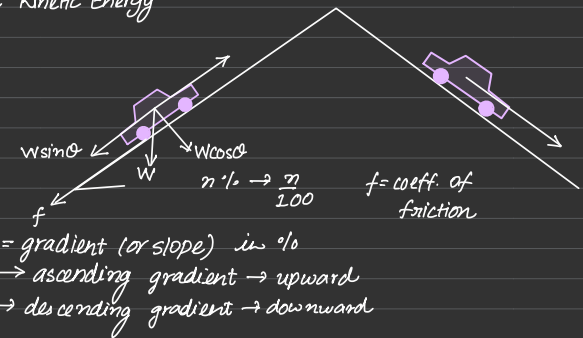 Kinetic Energy
Wsinθ
Wcosθ
W
n% → n/100
f = coeff. of
friction
f
= gradient (or slope) in %
→ ascending gradient → upward
→ descending gradient → downward